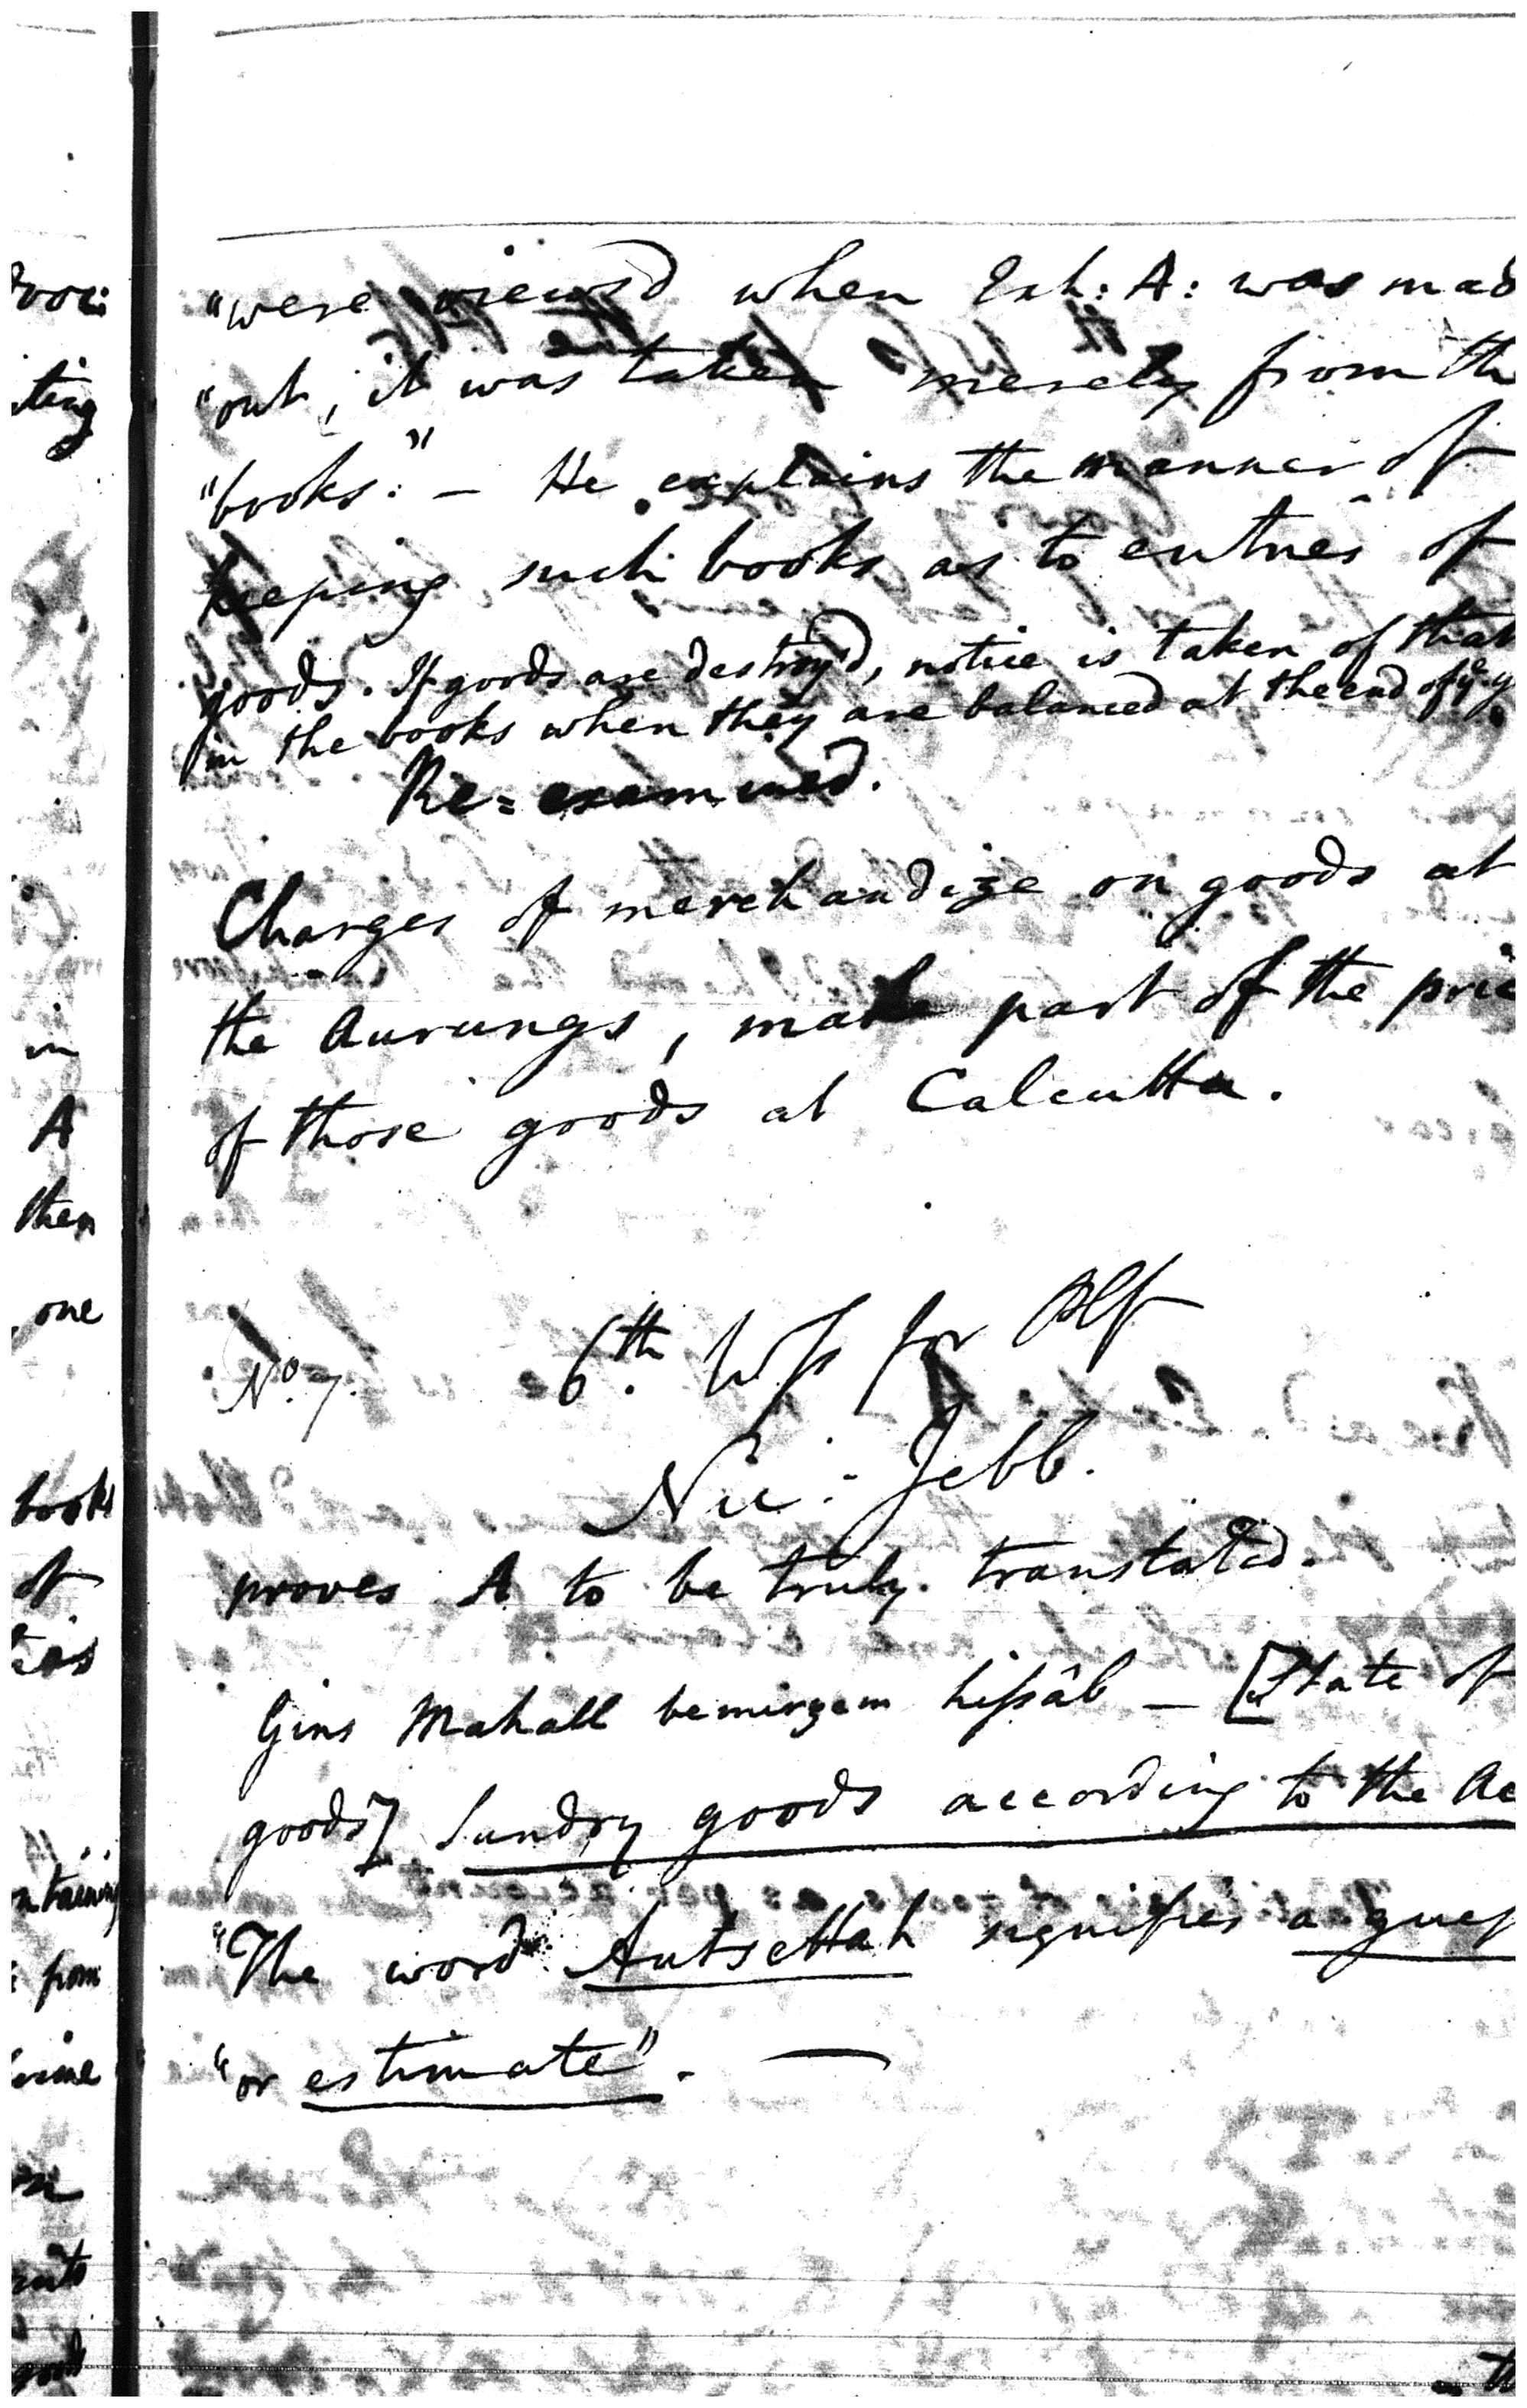 "were viewed when Exh: A: was mad
"out, it was taken merely from th
"books." – He explains the manner of
keeping such books as to entries of
goods. If goods are destroy'd, notice is taken of that
in the books when they are balanced at the end of ye. y
Re=examined.
Charges of merchandize on goods at
the Aurungs, make part of the pric
of those goods at Calcutta.
No. 7. 6th. Wss for Plf
Nic: Jebb.
proves A to be truly translated.
Gins Mahall bemirzem hissâb – [State of
goods] Sundry goods according to the Ac
"The word Autsettah signifies a gues
"or estimate". —
ting
in
A
then
one
books
of